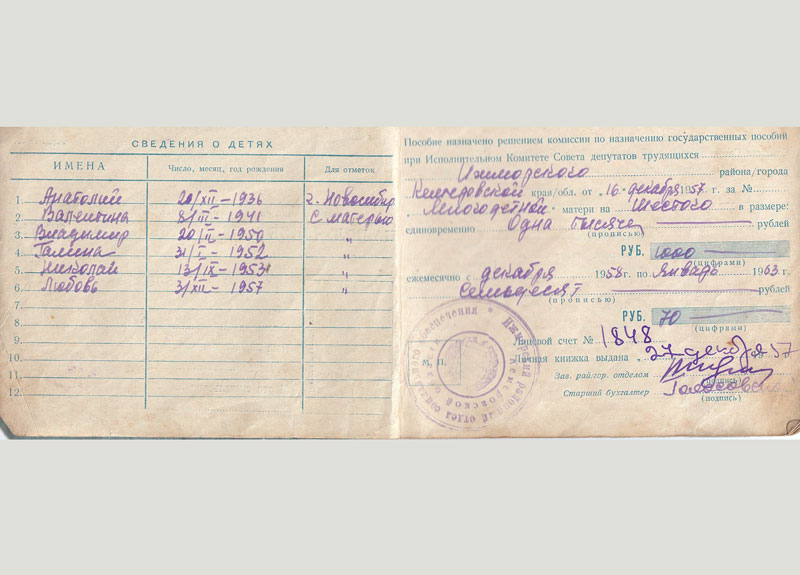 СВЕДЕНИЯ О ДЕТЯХ
ИМЕНА Число, месяц, год рождения Для отметок
1. Анатолий 20/XII-1936 г. Новосибир
2. Валентина 8/III-1941 с матерью
3. Владимир 20/II-1950 "
4. Галина 31/I-1952 "
5. Николай 13/IX-1953 "
6. Любовь 3/XII-1957 "
7.
8.
9.
10.
11.
12.
Пособие назначено решением комиссии по назначению государственных пособий
при Исполнительном Комитете Совета депутатов трудящихся
Ижморского района/города
Кемеровской края/обл. от 16 декабря 1957 г. за №
"Многодетной" матери на Шестого в размере:
единовременно Одна тысяча рублей
(прописью)
РУБ. 1000
(цифрами)
ежемесячно с декабря 1958 г. по Январь 1963 г.
Семьдесят рублей
(прописью)
РУБ. 70
(цифрами)
Лицевой счет № 1848
М. П. Личная книжка выдана „27" декабря 1957
Зав. рай/гор. отделом
(подпись)
Старший бухгалтер
(подпись)
Ижморский районный отдел социального обеспечения
Кемеровской